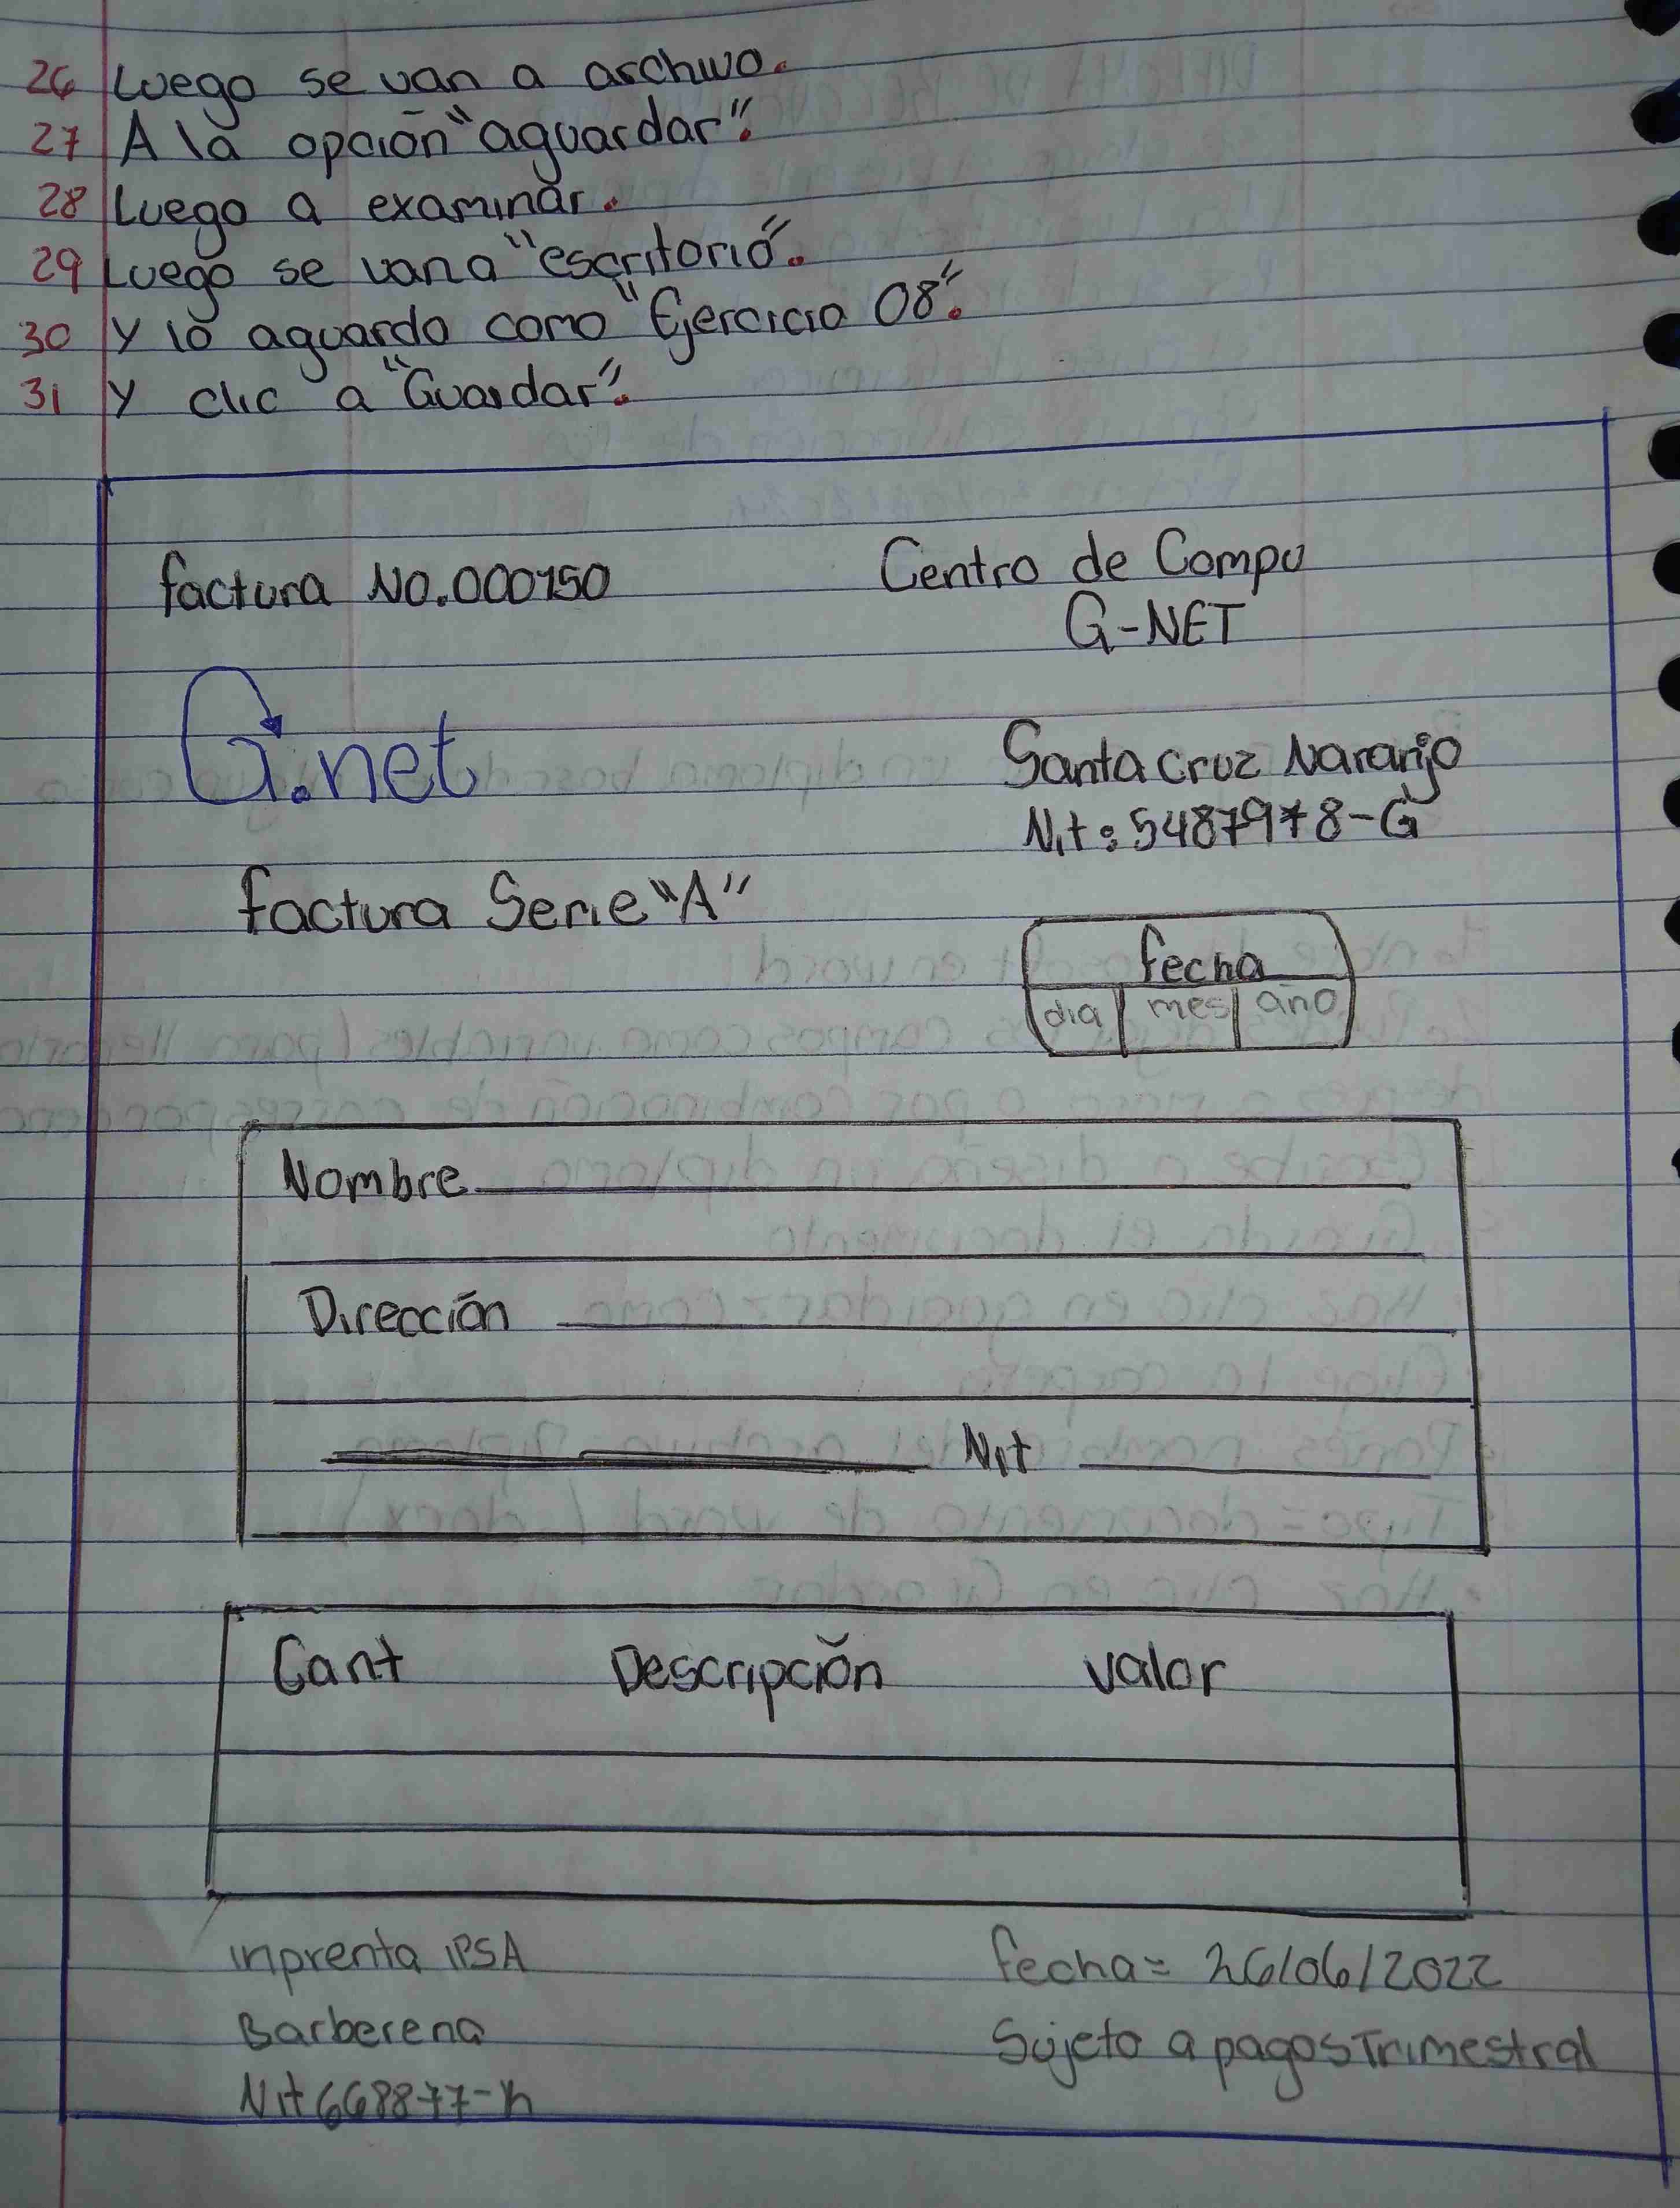 26 Luego se van a archivo.
27 A la opción "aguardar".
28 Luego a examinar.
29 Luego se van a "escritorio".
30 y lo aguardo como "Ejercicio 08".
31 y clic a "Guardar".
factura No.000150
Centro de Compu
G-NET
G.net
Santa cruz Naranjo
Nit: 5487978-G
factura Serie "A"
fecha
dia mes año
Nombre
Dirección
Nit
Cant Descripción valor
inprenta IPSA
fecha= 26/06/2022
Barberena
Sujeto a pagos Trimestral
Nit 668877-k